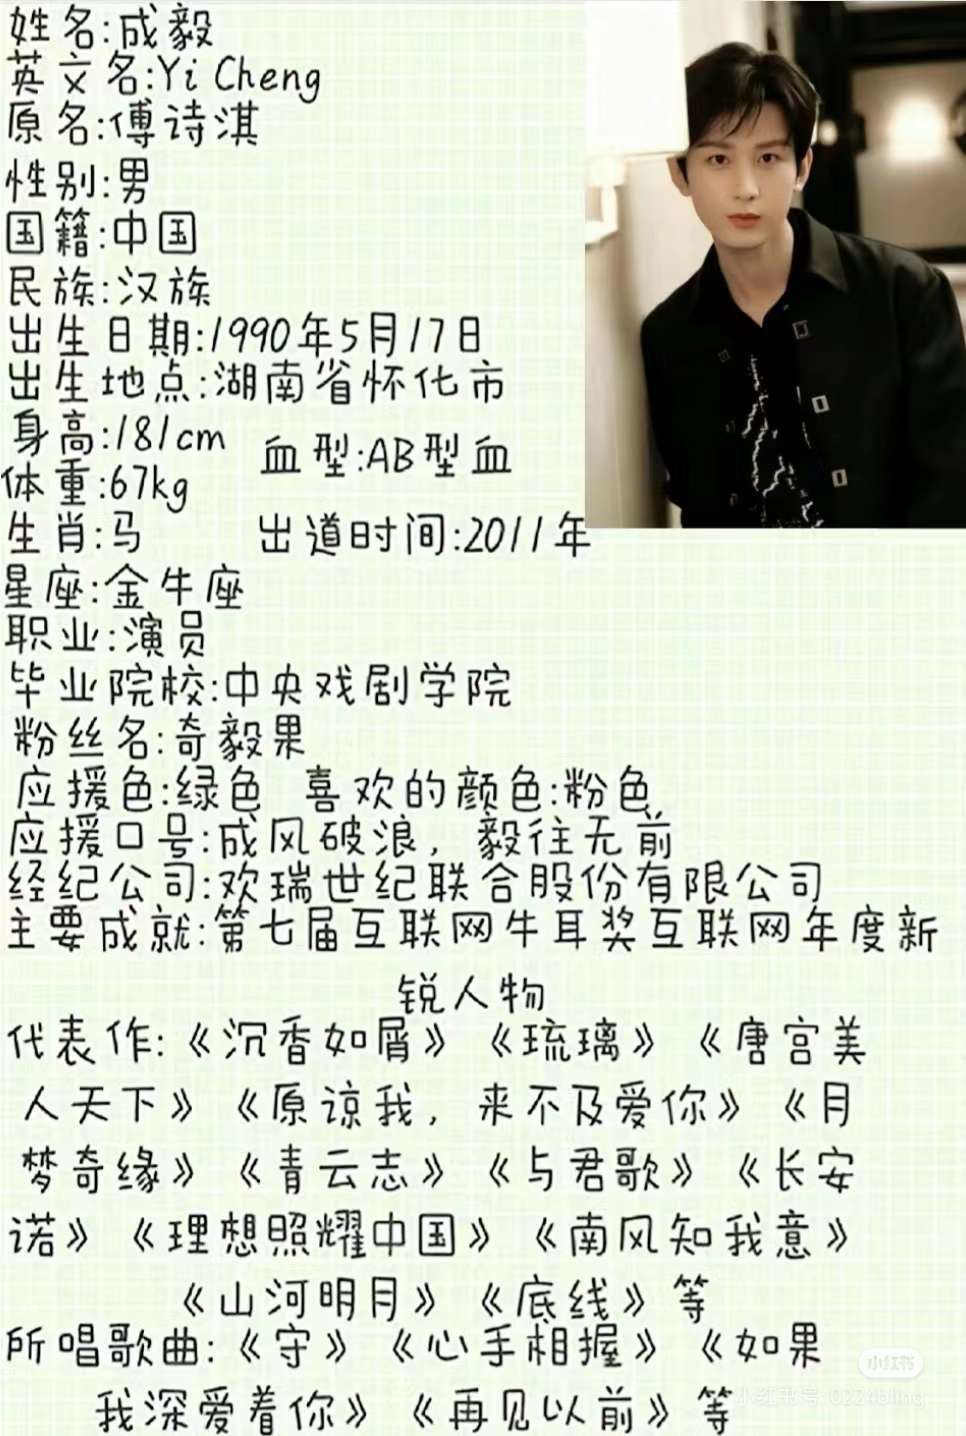 姓名:成毅
英文名:Yi Cheng
原名:傅诗淇
性别:男
国籍:中国
民族:汉族
出生日期:1990年5月17日
出生地点:湖南省怀化市
身高:181cm 血型:AB型血
体重:67kg
生肖:马 出道时间:2011年
星座:金牛座
职业:演员
毕业院校:中央戏剧学院
粉丝名:奇毅果
应援色:绿色 喜欢的颜色:粉色
应援口号:成风破浪，毅往无前
经纪公司:欢瑞世纪联合股份有限公司
主要成就:第七届互联网牛耳奖互联网年度新
锐人物
代表作:《沉香如屑》《琉璃》《唐宫美
人天下》《原谅我，来不及爱你》《月
梦奇缘》《青云志》《与君歌》《长安
诺》《理想照耀中国》《南风知我意》
《山河明月》《底线》等
所唱歌曲:《守》《心手相握》《如果
我深爱着你》《再见以前》等
小红书
小红书号 0224bling